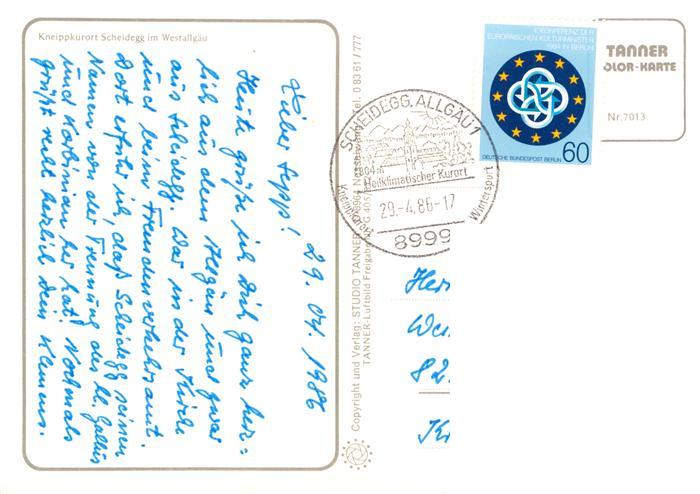 Kneippkurort Scheidegg im Westallgäu
29. 04. 1986
Lieber Sepp!
Heute grüße ich Dich ganz herz=
lich aus dem Allgäu und zwar
aus Scheidegg. War in der Kirche
und beim Fremdenverkehrsamt.
Dort erfuhr ich, daß Scheidegg seinen
Namen von der Trennung des hl. Gallus
und Korbinian her hat! Nochmals
grüßt recht herzlich Dein
Klemens.
Copyright und Verlag: STUDIO TANNER
8964 Nesselwang Tel. 0 83 61 / 777
TANNER-Luftbild Freigabe
G 405/
4. KONFERENZ DER
EUROPÄISCHEN KULTURMINISTER
1984 IN BERLIN
DEUTSCHE BUNDESPOST BERLIN
60
SCHEIDEGG, ALLGÄU 1
804 m
Heilklimatischer Kurort
Kneippkurort
Wintersport
29.-4.86-17
8999
TANNER
OLOR-KARTE
Nr. 7013
Her
82